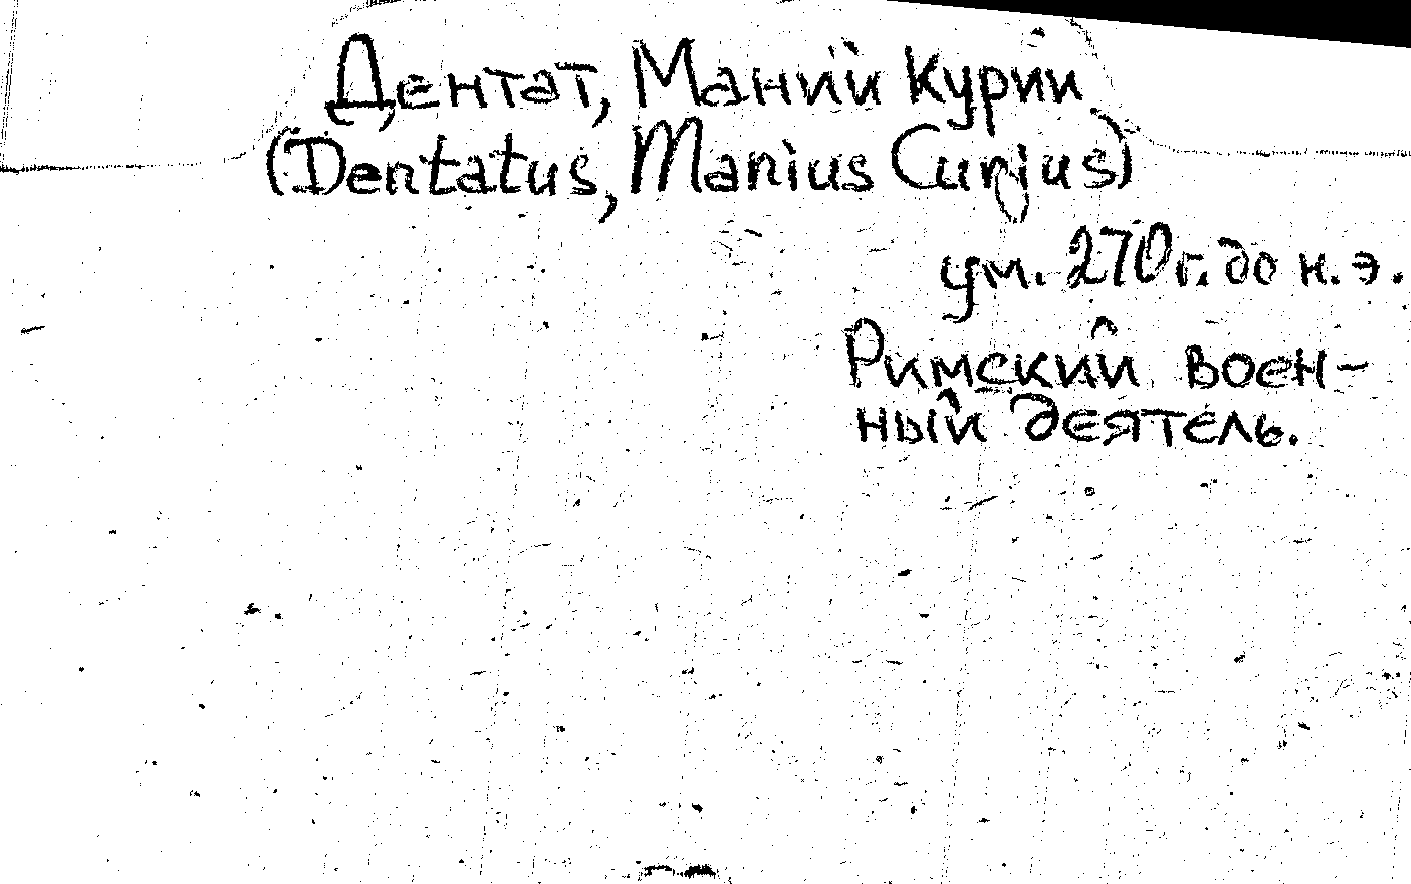 Дентат, Маний Курий
(Dentatus, Manius Curjus)
ум. 270 г. до н. э.
Римский воен-
ный деятель.